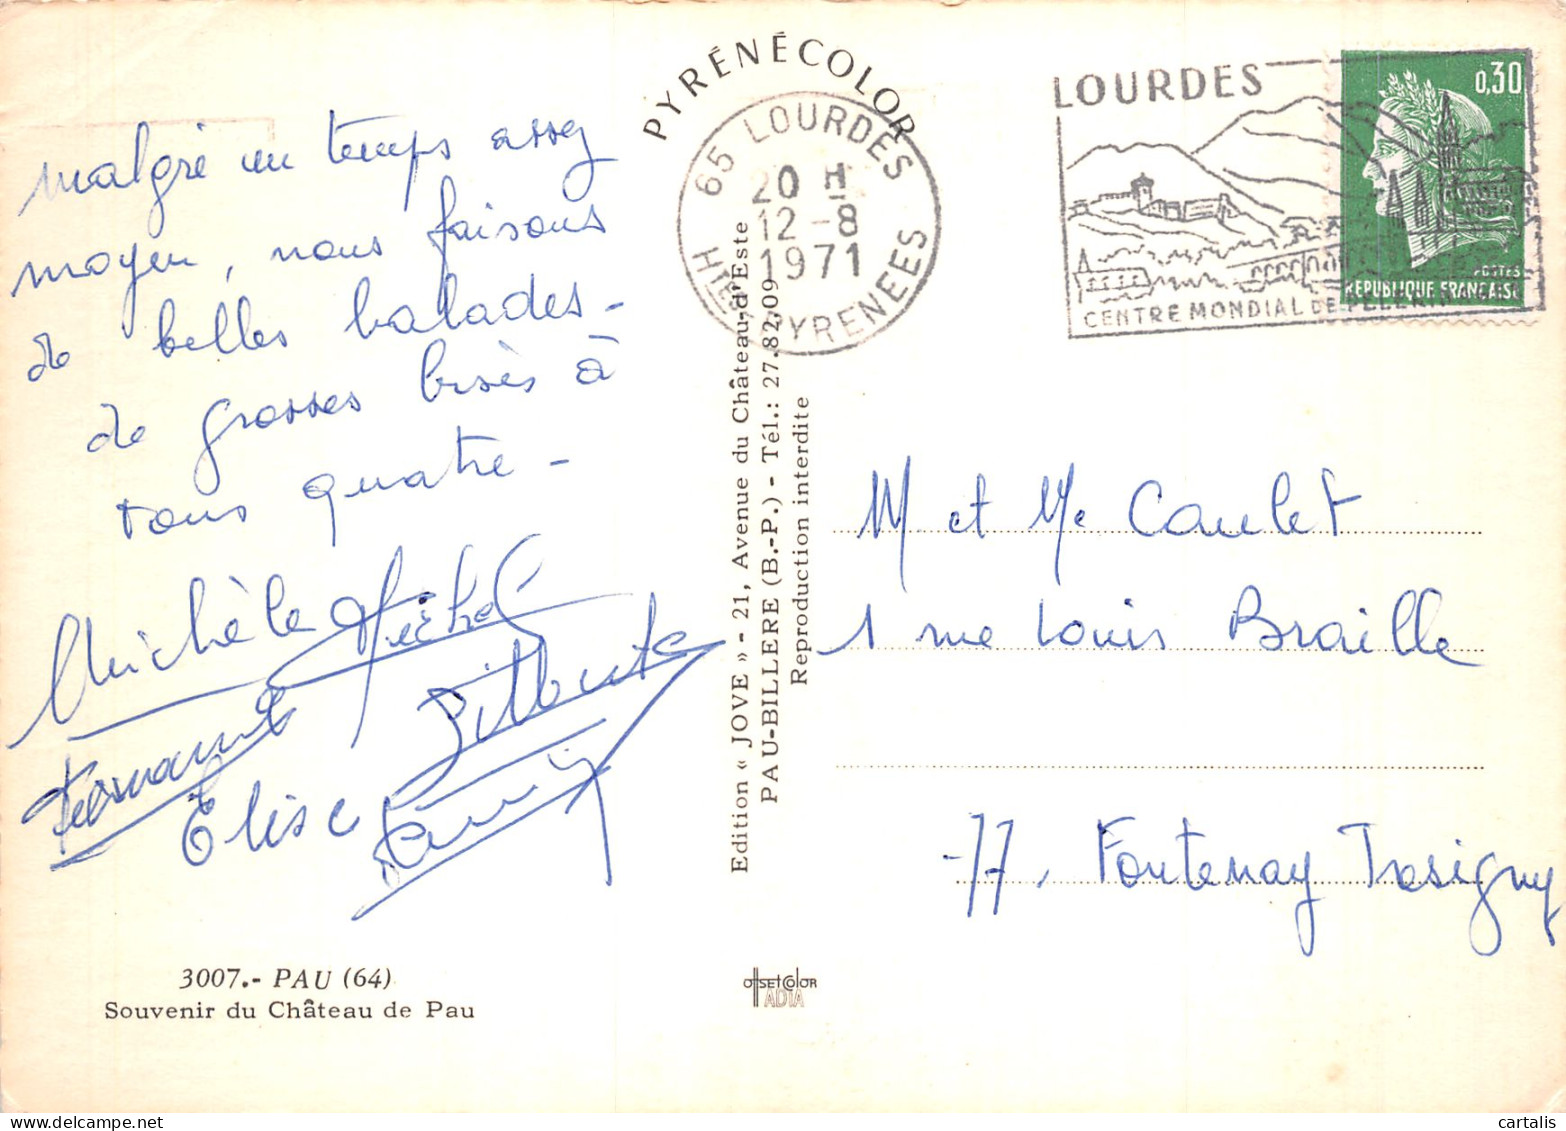 malgré un temps assez
moyen, nous faisons
de belles balades -
de grosses bises à
tous quatre -
Michèle Michel
Fernand Gilberte
Elise
3007.- PAU (64)
Souvenir du Château de Pau
PYRÉNÉCOLOR
Edition « JOVE » - 21, Avenue du Château-d'Este
PAU-BILLERE (B.-P.) - Tél.: 27.82.09
Reproduction interdite
offsetcolor
ADIA
65 LOURDES
20 H
12-8
1971
HTES PYRENEES
LOURDES
CENTRE MONDIAL DE PELERIN
0,30
POSTES
REPUBLIQUE FRANÇAISE
M et Me Caulet
1 rue Louis Braille
77. Fontenay Tresigny
cartalis